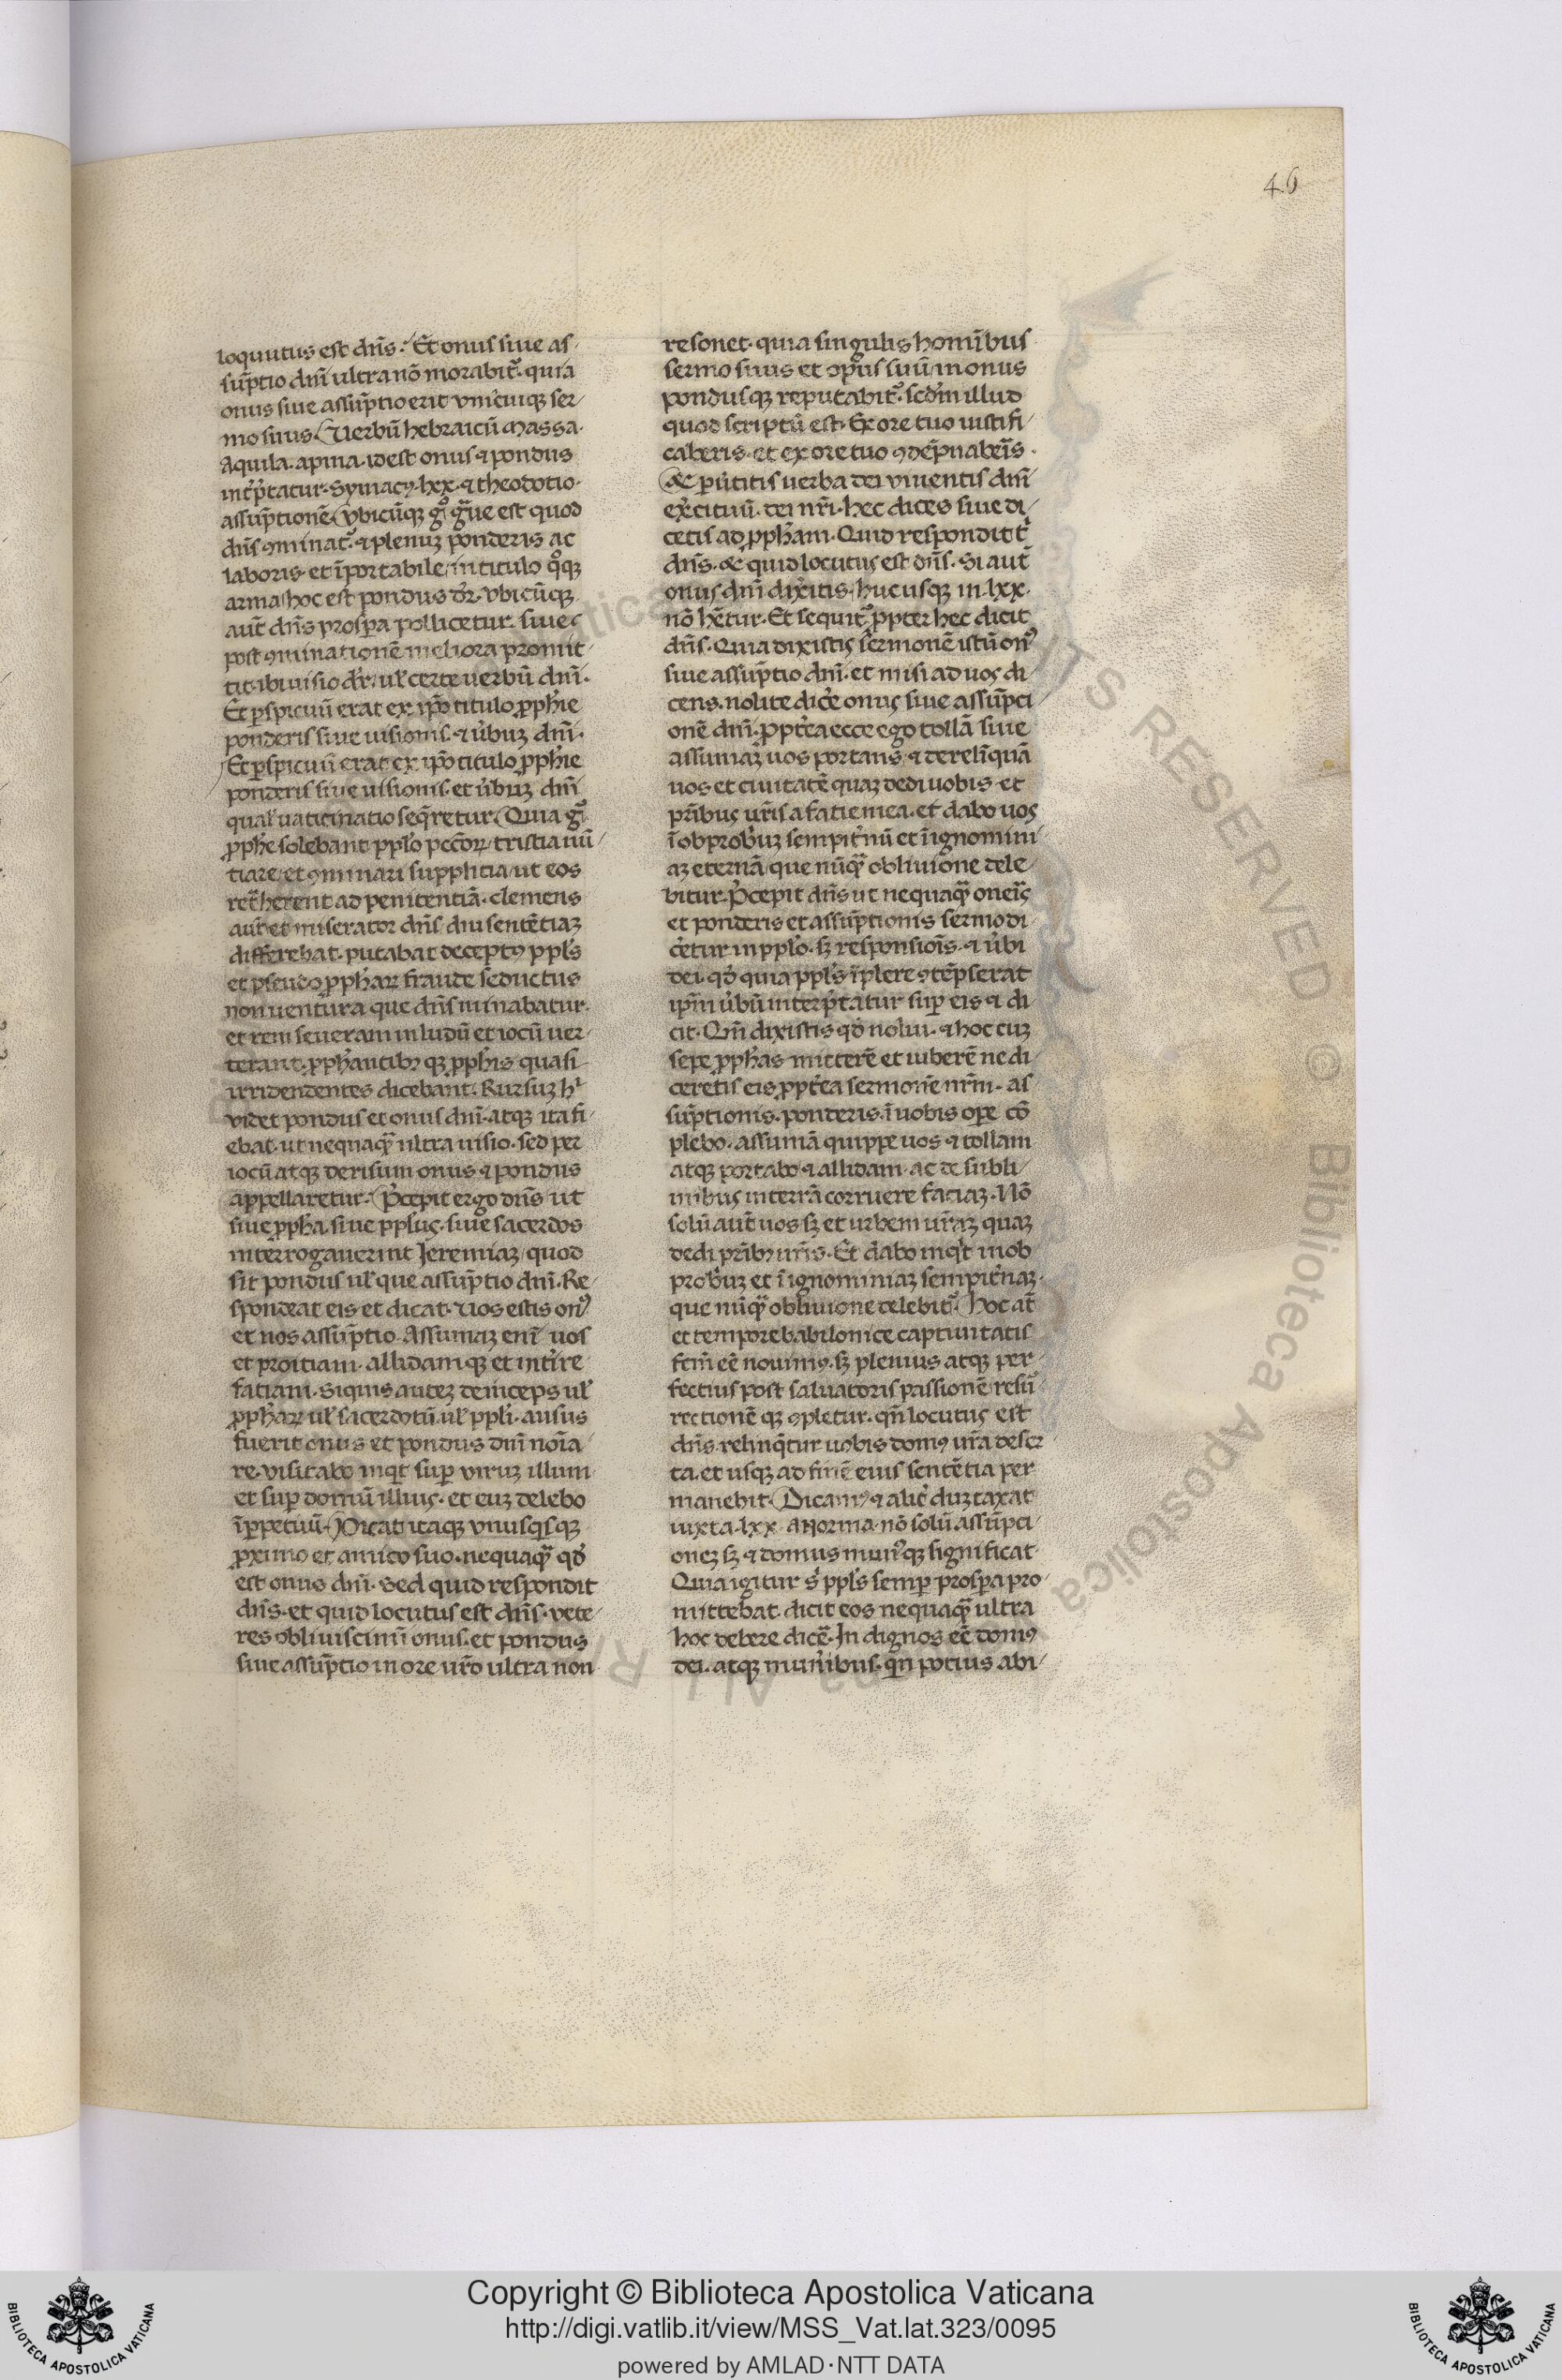 46
loquutus est dn̄s. Et onus siue as-
sūptio dn̄i ultra nō morabit᷑. quia
onus siue assūptio erit vnicuiqꝫ ser-
mo suus. Verbū hebraicū Massa.
Aquila. apina. idest onus ⁊ pondus
int̄ptatur. Symacꝯ. lxx. ⁊ theodotio.
assūptionē. Vbicūqꝫ gͦ gͣue est quod
dn̄s ꝯminat᷑. ⁊ plenuꝫ ponderis ac
laboris. et īportabile in titulo qͦqꝫ
arma hoc est pondus dr̄. vbicūqꝫ
aut̄ dn̄s prosp̱a pollicetur. siue
post ꝯminationē meliora promit-
tit. ibi uisio dr̄. ul̄ certe uerbū dn̄i.
Et ꝑspicuū erat ex ip̄o titulo ꝓph̄ie
ponderis siue uisionis. ⁊ u̓buꝫ dn̄i.
Et ꝑspicuū erat ex ip̄o titulo ꝓph̄ie
ponderis siue uisionis. et u̓buꝫ dn̄i
qual̄ uaticinatio seq̄retur. Quia gͦ
ꝓph̄e solebant ppl̄o pcc̄oꝝ tristia nū-
tiare. et ꝯminari supplitia ut eos
ret̄herent ad penitentiā. clemens
aut̄ et miserator dn̄s diu sentētiaꝫ
differebat. putabat deceptꝯ ppl̄s
et pseudo ꝓph̄aꝝ fraude seductus
non uentura que dn̄s minabatur.
et rem seueram in ludū et iocū uer-
terant. ꝓph̄antibꝫ qꝫ ꝓph̄is quasi
irridendentes dicebant. Rursuꝫ hͥ
videt pondus et onus dn̄i. atqꝫ ita fi-
ebat. ut nequaqͣ ultra uisio. sed per
iocū atqꝫ derisum onus ⁊ pondus
appellaretur. P̄cepit ergo dn̄s ut
siue ꝓph̄a. siue pplu̓s. siue sacerdos
interrogauerint Jeremiaꝫ quod
sit pondus ul̄ que assūptio dn̄i. Re-
spondeat eis et dicat. Vos estis onꝯ
et nos assūptio. Assumaꝫ enī uos
et proitiam. allidamqꝫ et int̓ire
fatiam. Siquis auteꝫ deinceps ul̄
ꝓph̄aꝝ ul̄ sacerdotū. ul̄ ppl̄i. ausus
fuerit onus et pondus dn̄i noīa-
re. visitabo inqͥt suꝑ viruꝫ illum
et suꝑ domū illius. et euꝫ delebo
īꝑpetuū. Dicat itaqꝫ vnusqͥsqꝫ
ꝓximo et amico suo. nequaqͣ qd̓
est onus dn̄i. Sed quid respondit
dn̄s. et quid locutus est dn̄s. vete-
res obliuiscimī onus. et pondus
siue assūptio in ore ur̄o ultra non
resonet. quia singulis homībus
sermo suus et opus suū in onus
pondusqꝫ reputabit᷑. scd̄m illud
quod scriptū est. Ex ore tuo iustifi-
caberis. et ex ore tuo ꝯdēpnaberis.
Et ꝑu̓titis uerba dei uiuentis dn̄i
exe̓cituū. dei nr̄i. hec dices siue di-
cetis ad ꝓpham. Quid respondit t̓
dn̄s. et quid locutus est dn̄s. Si aut̄
onus dn̄i dixe̓itis. hucusqꝫ in lxx.
nō hētur. Et sequit᷑ ꝓpter hec dicit
dn̄s. Quia dixistis sermonē istū onꝯ
siue assūptio dn̄i. et misi ad uos di-
cens. nolite dice̓ onus siue assūpti-
onē dn̄i. ꝓpte̓a ecce ego tollā siue
assumaꝫ uos portans ⁊ derelīquā
uos et ciuitatē quaꝫ dedi uobis et
pr̄ibus ur̄is a fatie mea. et dabo uos
ī obprob̓uꝫ sempit̓nū et ī ignomini-
aꝫ eternā que nūqͣ obliuione dele-
bitur. P̄cepit dn̄s ut nequaqͣ oneris
et ponderis et assūptionis sermo di-
ce̓tur in ppl̄o. sꝫ responsiois. ⁊ u̓bi
dei. qd̓ quia ppl̄s īplere ꝯtēpserat
ip̄m u̓bū interp̄tatur suꝑ eis ⁊ di-
cit. Qm̄ dixistis qd̓ nolui. ⁊ hoc cuꝫ
sepe ꝓph̄as mitterē et iuberē ne di-
ceretis eis ꝓpte̓a sermonē nr̄m. as-
sūptionis. ponderis. ī uobis ope cō-
plebo. assumā quippe uos ⁊ tollam
atqꝫ portabo ⁊ allidam. ac de subli-
mibus in terrā corruere fatiaꝫ. Nō
solū aut̄ uos sꝫ et urbem ur̄aꝫ quaꝫ
dedi pr̄ibꝫ ur̄is. Et dabo inqͥt in ob-
prob̓uꝫ et ī ignominiaꝫ sempit̓naꝫ.
que nūqͣ obliuione delebit᷑. hoc at̄
et tempore babilonice captiuitatis
fcm̄ eē nouimꝯ. sꝫ plenius atqꝫ per-
fectius post saluatoris passionē resū-
rectionē qꝫ ꝯpletur. qn̄ locutus est
dn̄s. relinq̄tur uobis domꝯ ur̄a deser-
ta. et usqꝫ ad finē eius sentētia per-
manebit. Dicamꝯ ⁊ alit̓ duꝫtaxat
iuxta lxx. nō solū assūpti-
oneꝫ sꝫ ⁊ domus munꝰqꝫ significat
Quia igitur s̓ ppl̄s semꝑ prosꝑa pro-
mittebat. dicit eos nequaqͣ ultra
hoc debere dice̓. In dignos eē domꝯ
dei. atqꝫ mun̓ibus. qn̄ potius abi-
Copyright © Biblioteca Apostolica Vaticana
http://digi.vatlib.it/view/MSS_Vat.lat.323/0095
powered by AMLAD·NTT DATA
BIBLIOTECA APOSTOLICA VATICANA
BIBLIOTECA APOSTOLICA VATICANA